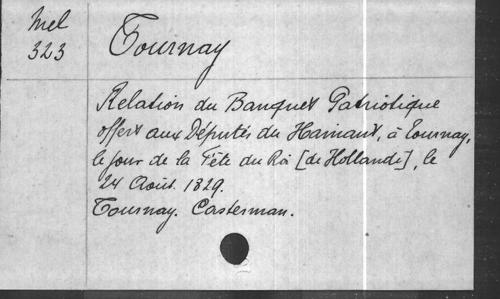 Mel
323
Tournay
Relation du Banquet Patriotique
offert aux Députés du Hainaut, à Tournay,
le jour de la Fête du Roi [de Hollande], le
24 Août 1829.
Tournay. Casterman.